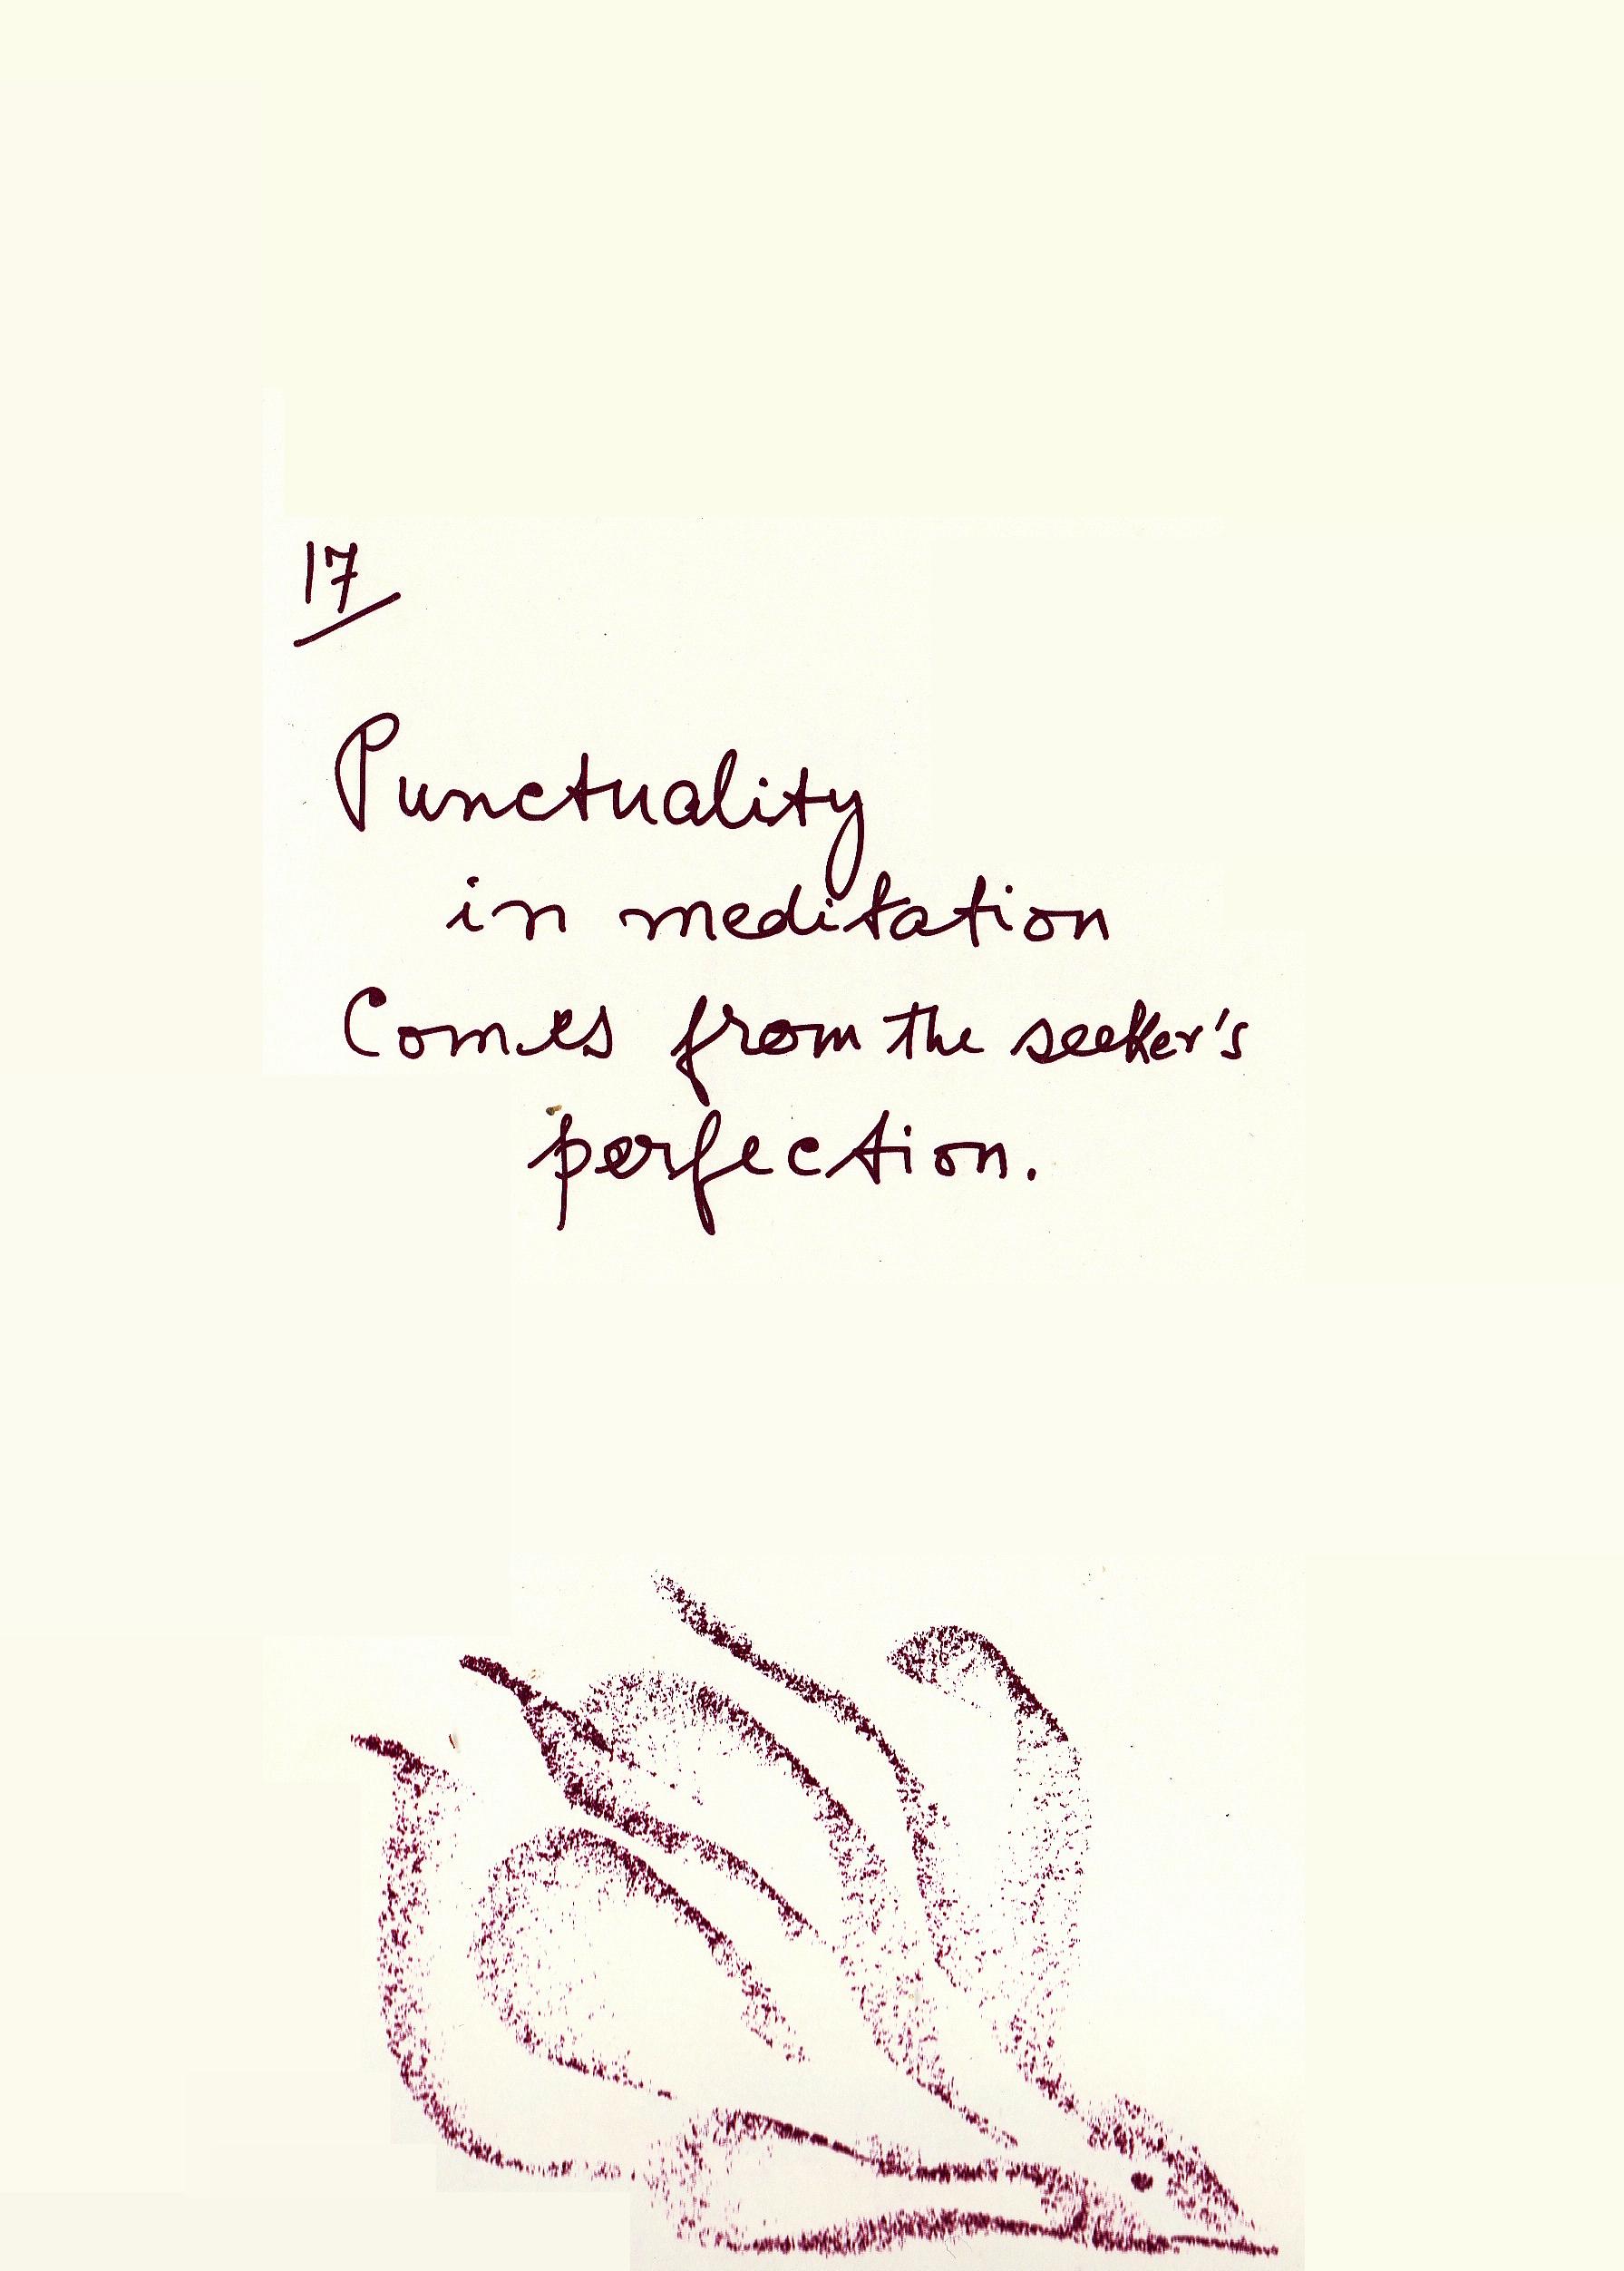 17
Punctuality
in meditation
Comes from the seeker's
perfection.